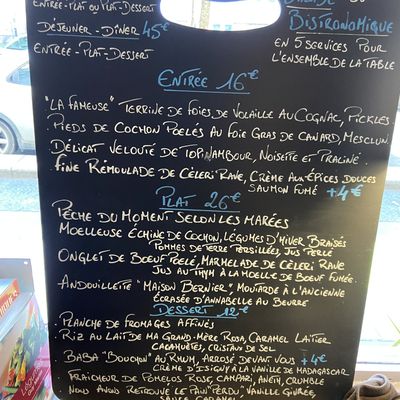 ENTRÉE-PLAT OU PLAT-DESSERT
DÉJEUNER-DÎNER 45€
ENTRÉE-PLAT-DESSERT
BISTRONOMIQUE
EN 5 SERVICES POUR
L'ENSEMBLE DE LA TABLE
ENTRÉE 16€
"LA FAMEUSE" TERRINE DE FOIES DE VOLAILLE AU COGNAC, PICKLES.
PIEDS DE COCHON POELÉS AU FOIE GRAS DE CANARD, MESCLUN.
DÉLICAT VELOUTÉ DE TOPINAMBOUR, NOISETTE ET PRALINÉ.
FINE RÉMOULADE DE CÉLERI RAVE, CRÈME AUX ÉPICES DOUCES
SAUMON FUMÉ +4€
PLAT 26€
PÊCHE DU MOMENT SELON LES MARÉES
MOELLEUSE ÉCHINE DE COCHON, LÉGUMES D'HIVER BRAISÉS
POMMES DE TERRE PERSILLÉES, JUS PERLÉ
ONGLET DE BOEUF POELÉ, MARMELADE DE CÉLERI RAVE
JUS AU THYM À LA MOELLE DE BOEUF FUMÉE.
ANDOUILLETTE "MAISON BERNIER", MOUTARDE À L'ANCIENNE
ÉCRASÉE D'ANNABELLE AU BEURRE
DESSERT 12€
PLANCHE DE FROMAGES AFFINÉS
RIZ AU LAIT DE MA GRAND-MÈRE ROSA, CARAMEL LAITIER
CACAHUÈTES, CRISTAUX DE SEL
BABA "BOUCHON" AU RHUM, ARROSÉ DEVANT VOUS +4€
CRÈME D'ISIGNY À LA VANILLE DE MADAGASCAR
FRAÎCHEUR DE POMELOS ROSE, CAMPARI, ANETH, CRUMBLE
NOUS AVONS RETROUVÉ LE PAIN PERDU, VANILLE GIVRÉE,
CARAMEL